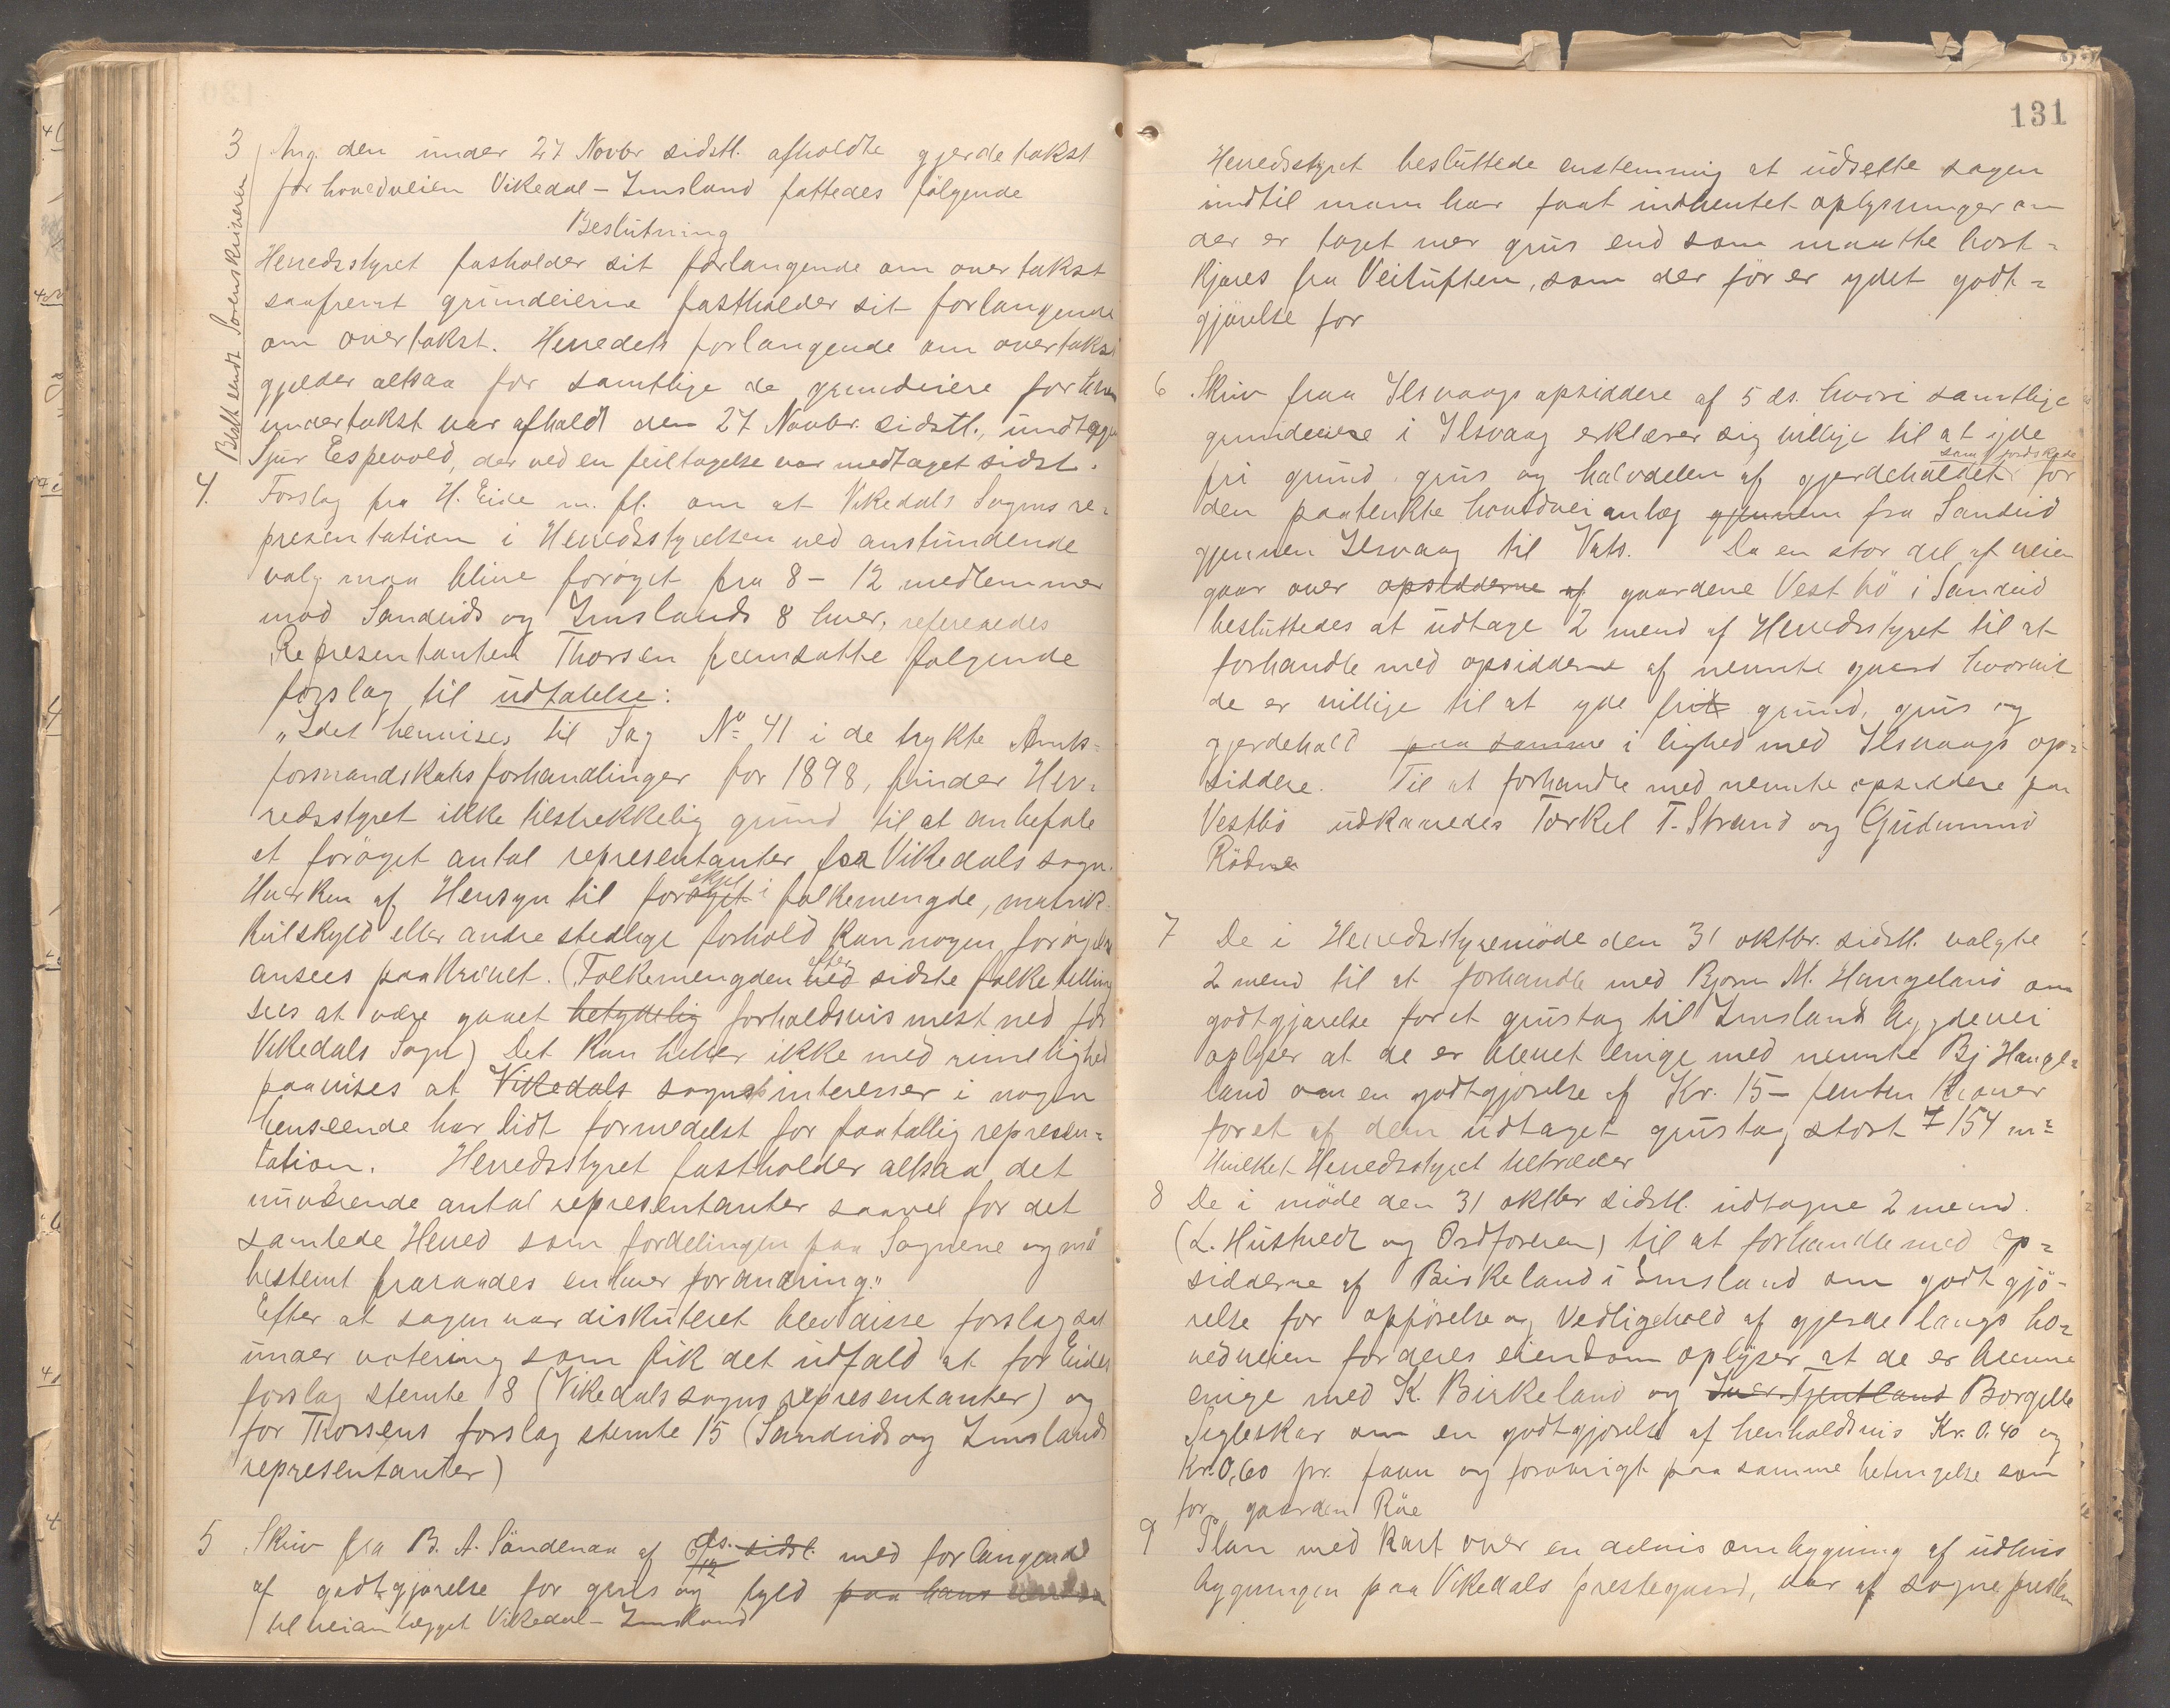 3 Ang. den under 27 Novbr sidstl. afholdte gjerdetakst
for hovedveien Vikedal - Imsland fattedes følgende
Beslutning
Herredsstyret fasholder sit forlangende om overtakst
saafremt grundeierne fastholder sit forlangende
om overtakst. Herredets forlangende om overtakst
gjelder altsaa for samtlige de grundeiere for hvem
undertakst var afholdt den 27 Novbr. sidstl., undtagen
Sjur Espevold, der ved en feiltagelse var medtaget sidst.
Sorenskriveren
4. Forslag fra H. Eide m. fl. om at Vikedals Sogns re-
presentation i Herredsstyrelsen ved anstundende
valg maa blive forøget fra 8 - 12 medlemmer
mod Sandeids og Imslands 8 hver, refereredes
Representanten Thorsen fremsatte følgende
forslag til udtalelse:
"Idet henvises til Sag No 41 i de trykte Amts-
formandskabsforhandlinger for 1898, finder Her-
redsstyret ikke tilstrekkelig grund til at anbefale
et forøget antal representanter fra Vikedals sogn.
Hverken af Hensyn til forøget i folkemengde, matrik-
kulskyld eller andre stedlige forhold kan nogen forøgelse
ansees paakrævet. (Folkemengden ved efter sidste folketelling
sees at være gaaet betydelig forholdsvis mest ned for
Vikedals Sogn) Det kan heller ikke med rimelighed
paavises at Vikedals sogns interesser i nogen
henseende har lidt formedelst for faatallig represen-
tation. Herredsstyret fastholder altsaa det
nuværende antal representanter saavel for det
samlede Herred som fordelingen paa Sognene og maa
bestemt fraraades enhver forandring."
Efter at sagen var diskuteret blev disse forslag sat
under votering som fik det udfald at for Eides
forslag stemte 8 (Vikedals sogns representanter) og
for Thorsens forslag stemte 15 (Sandeids og Imslands
representanter)
5 Skriv fra B. A. Söndenaa af 6/12 ds. sidst. med forlangende
af godtgjørelse for grus og fyld paa hans eiendom
til veianlægget Vikedal - Imsland
131
Herredsstyret besluttede enstemmig at udsette sagen
indtil man har faat indhentet oplysninger om
der er taget mer grus end som maatte bort-
kjøres fra Veituften, som der før er ydet godt-
gjørelse for
6. Skriv fraa Ilsvaags opsiddere af 5 ds. hvori samtlige
grundeiere i Ilsvaag erklærer sig villige til at yde
fri grund, grus og halvdelen af gjerdeholdet for
den paatenkte hovedveianlæg gjennem fra Sandeid
gjennem Ilsvaag til Vats. Da en stor del af veien
gaar over opsidderne af gaardene Vestbö i Sandeid
besluttedes at udtage 2 mend af Herredsstyret til at
forhandle med opsidderne af nevnte gaard hvorvidt
de er villige til at yde frit grund, grus og
gjerdehold paa samme i lighed med Ilsvaags op-
siddere. Til at forhandle med nevnte opsiddere paa
Vestbö udkaaredes Torkel T. Strand og Gudmund
Rödne
7 De i Herredsstyremöde den 31 oktbr. sidstl. valgte
2 mend til at forhandle med Bjorn M. Haugeland om
godtgjørelse for et grustag til Imsland bygdevei
oplyser at de er blevet enige med nevnte Bj Hauge-
land om en godtgjørelse af Kr. 15 - femten kroner
for et af dem udtaget grustag stort 154 m2
Hvilket Herredsstyret tiltræder
8 De i möde den 31 oktbr sidstl. udtagne 2 mend.
(L. Hustvedt og Ordføreren) til at forhandle med op-
sidderne af Birkeland i Imsland om godtgjö-
relse for opførelse og Vedligehold af gjerde langs ho-
vedveien for deres eiendom oplyser at de er blevne
enige med K. Birkeland og Iver Tjentland Borgille
Segleskar om en godtgjørelse af henholdsvis Kr. 0.40 og
Kr. 0,60 pr. favn og forøvrigt paa samme betingelse som
for gaarden Röe
9 Plan med kart over en delvis ombygning af udhus
bygningen paa Vikedals prestegaard, var af sognepresten